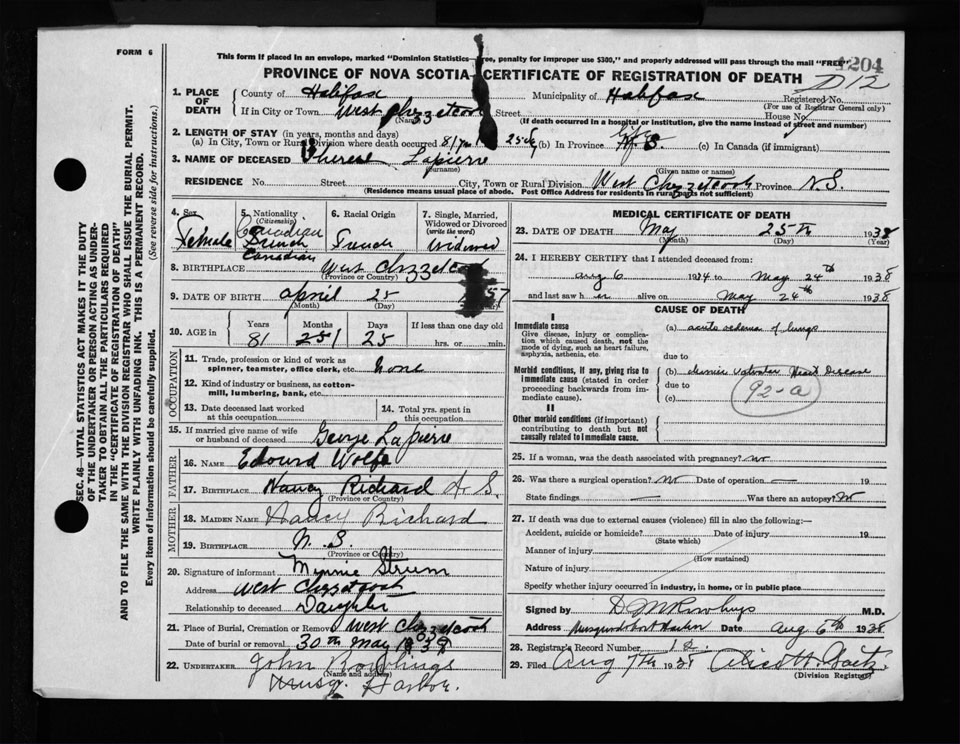 FORM 6
This form if placed in an envelope, marked "Dominion Statistics—Free, penalty for improper use $300," and properly addressed will pass through the mail "FREE"
1204
PROVINCE OF NOVA SCOTIA—CERTIFICATE OF REGISTRATION OF DEATH
D12
1. PLACE OF DEATH
County of Halifax Municipality of Halifax Registered No.
(For use of Registrar General only)
If in City or Town West Chezzetcook Street House No.
(If death occurred in a hospital or institution, give the name instead of street and number)
2. LENGTH OF STAY (in years, months and days)
(a) In City, Town or Rural Division where death occurred 81 yrs 25 d (b) In Province life N.S. (c) In Canada (if immigrant)
3. NAME OF DECEASED Therese Lapierre
(Surname) (Given name or names)
RESIDENCE No. Street City, Town or Rural Division West Chezzetcook Province N.S.
(Residence means usual place of abode. Post Office Address for residents in rural parts not sufficient)
4. Sex Female
5. Nationality (Citizenship) Canadian French Canadian
6. Racial Origin French
7. Single, Married, Widowed or Divorced (write the word) Widowed
8. BIRTHPLACE West Chezzetcook
(Province or Country)
9. DATE OF BIRTH April 25 57
(Month) (Day)
10. AGE in Years 81 Months 1 Days 25 If less than one day old hrs. or min.
OCCUPATION
11. Trade, profession or kind of work as spinner, teamster, office clerk, etc. none
12. Kind of industry or business, as cotton-mill, lumbering, bank, etc.
13. Date deceased last worked at this occupation
14. Total yrs. spent in this occupation
15. If married give name of wife or husband of deceased George Lapierre
FATHER
16. NAME Edourd Wolfe
17. BIRTHPLACE Nancy Richard N.S.
(Province or Country)
MOTHER
18. MAIDEN NAME Nancy Richard
19. BIRTHPLACE N.S.
(Province or Country)
20. Signature of informant Minnie Strum
Address West Chezzetcook
Relationship to deceased Daughter
21. Place of Burial, Cremation or Removal West Chezzetcook
Date of burial or removal 30th May 1938
22. UNDERTAKER John Rowlings
(Name and address)
Musq. Harbor.
MEDICAL CERTIFICATE OF DEATH
23. DATE OF DEATH May 25th 1938
(Month) (Day) (Year)
24. I HEREBY CERTIFY that I attended deceased from:
Aug 6 1924 to May 24th 1938
and last saw her alive on May 24th 1938
CAUSE OF DEATH
I
Immediate cause
Give disease, injury or complication which caused death, not the mode of dying, such as heart failure, asphyxia, asthenia, etc.
(a) acute oedema of lungs
due to
Morbid conditions, if any, giving rise to immediate cause (stated in order proceeding backwards from immediate cause).
(b) chronic valvular Heart Disease
due to
(c)
92-a
II
Other morbid conditions (if important) contributing to death but not causally related to immediate cause.
25. If a woman, was the death associated with pregnancy? no
26. Was there a surgical operation? No Date of operation — 19
State findings — Was there an autopsy? No
27. If death was due to external causes (violence) fill in also the following:—
Accident, suicide or homicide? Date of injury 19
(State which)
Manner of injury
(How sustained)
Nature of injury
Specify whether injury occurred in industry, in home, or in public place
Signed by D M Rowlings M.D.
Address Musquodoboit Harbor Date Aug 6th 1938
28. Registrar's Record Number 12
29. Filed Aug 7th 1938 Alice H. Gaetz
(Division Registrar)
SEC. 46—VITAL STATISTICS ACT MAKES IT THE DUTY OF THE UNDERTAKER OR PERSON ACTING AS UNDERTAKER TO OBTAIN ALL THE PARTICULARS REQUIRED IN THE "CERTIFICATE OF REGISTRATION OF DEATH"
AND TO FILE THE SAME WITH THE DIVISION REGISTRAR WHO SHALL ISSUE THE BURIAL PERMIT.
WRITE PLAINLY WITH UNFADING INK. THIS IS A PERMANENT RECORD.
Every item of information should be carefully supplied. (See reverse side for instructions.)